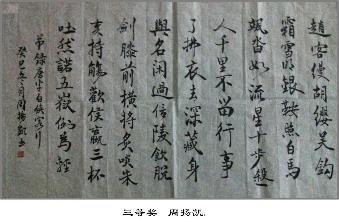 趙客縵胡纓吳鈎
霜雪明銀鞍照白馬
颯沓如流星十步殺
人千里不留行事
了拂衣去深藏身
與名閑過信陵飲脫
劍膝前橫將炙啖朱
亥持觴歡侯嬴三杯
吐然諾五嶽倒為輕
節錄唐李白俠客行
癸巳冬月周揚凱書
三等奖 周揚凯